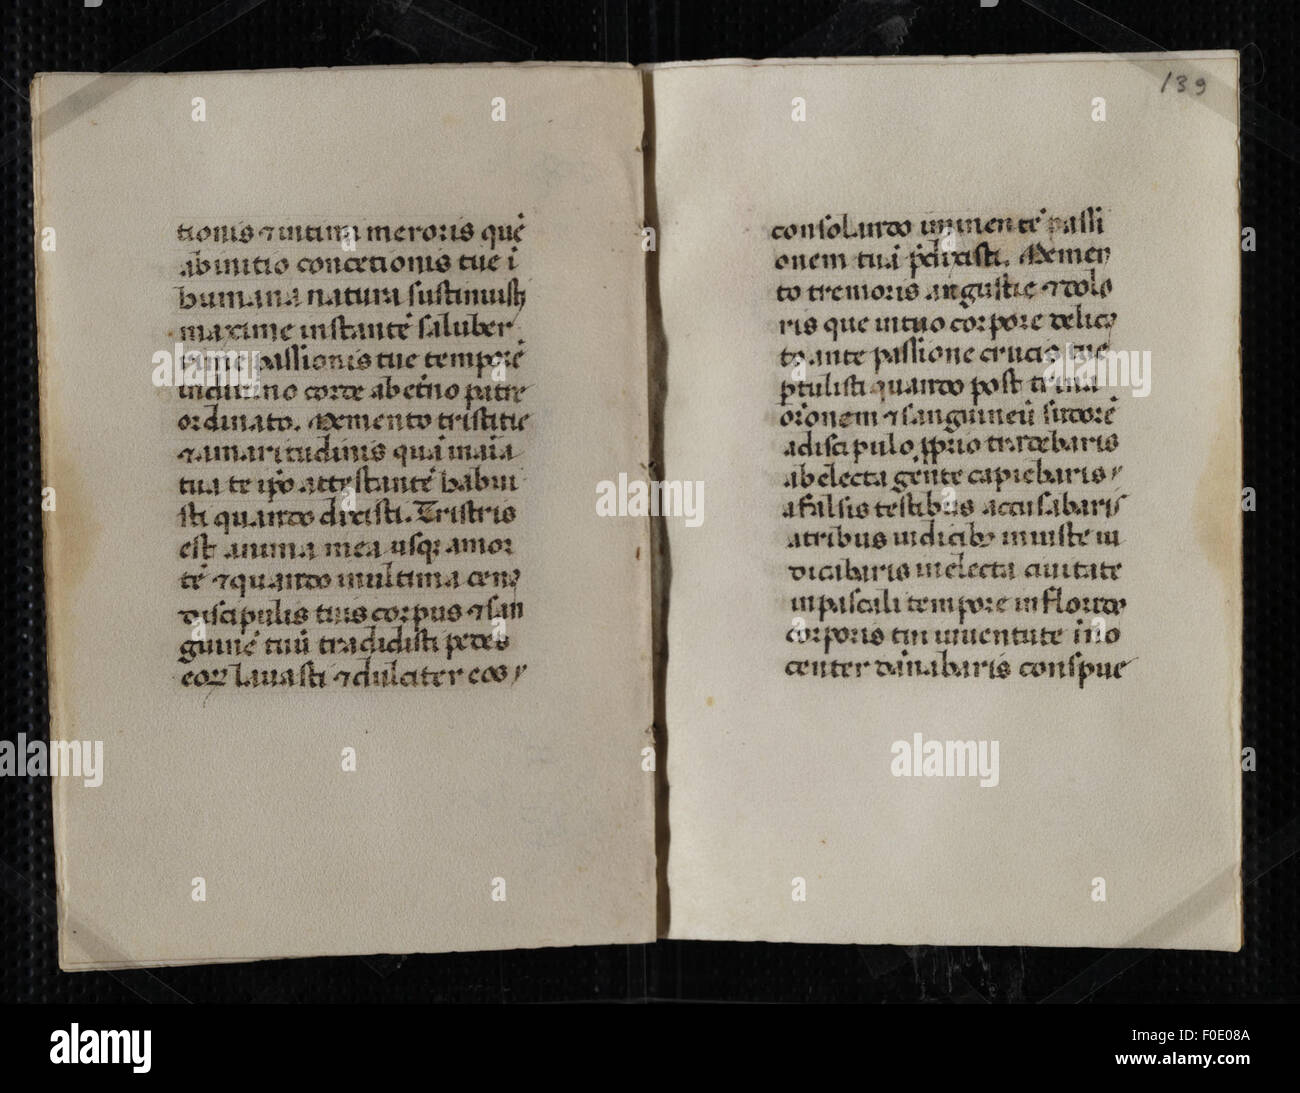 139
tionis ⁊ intima meroris quē
ab initio conceptionis tue ī
humana natura sustinuisti
maxime instante saluber
rime passionis tue tempore
in diuino corde ab etno patre
ordinato. Memento tristitie
⁊ amaritudinis quā in aīa
tua te ip̄o attestante habui
sti quando dixisti. Tristis
est anima mea usqꝫ a mor
tē ⁊ quando in ultima cena
discipulis tuis corpus ⁊ san
guinē tuū tradidisti pedes
eoꝝ lauasti ⁊ dulciter eos
consolando imminentē passi
onem tuā p̄dixisti. Memen
to tremoris angustie ⁊ dolo
ris que in tuo corpore delica
to ante passione crucis tue
ptulisti quando post trinā
orōnem ⁊ sanguineū sudorē
a discipulo proprio tradebaris
ab electa gente capiebaris
a falsis testibus accusabaris
a tribus iudicibꝫ iniuste iu
dicabaris in electa ciuitate
in pascali tempore in florido
corporis tui iuuentute īno
center dānabaris conspue
alamy
alamy
alamy
alamy
alamy
alamy
alamy
Image ID: F0E08A
www.alamy.com